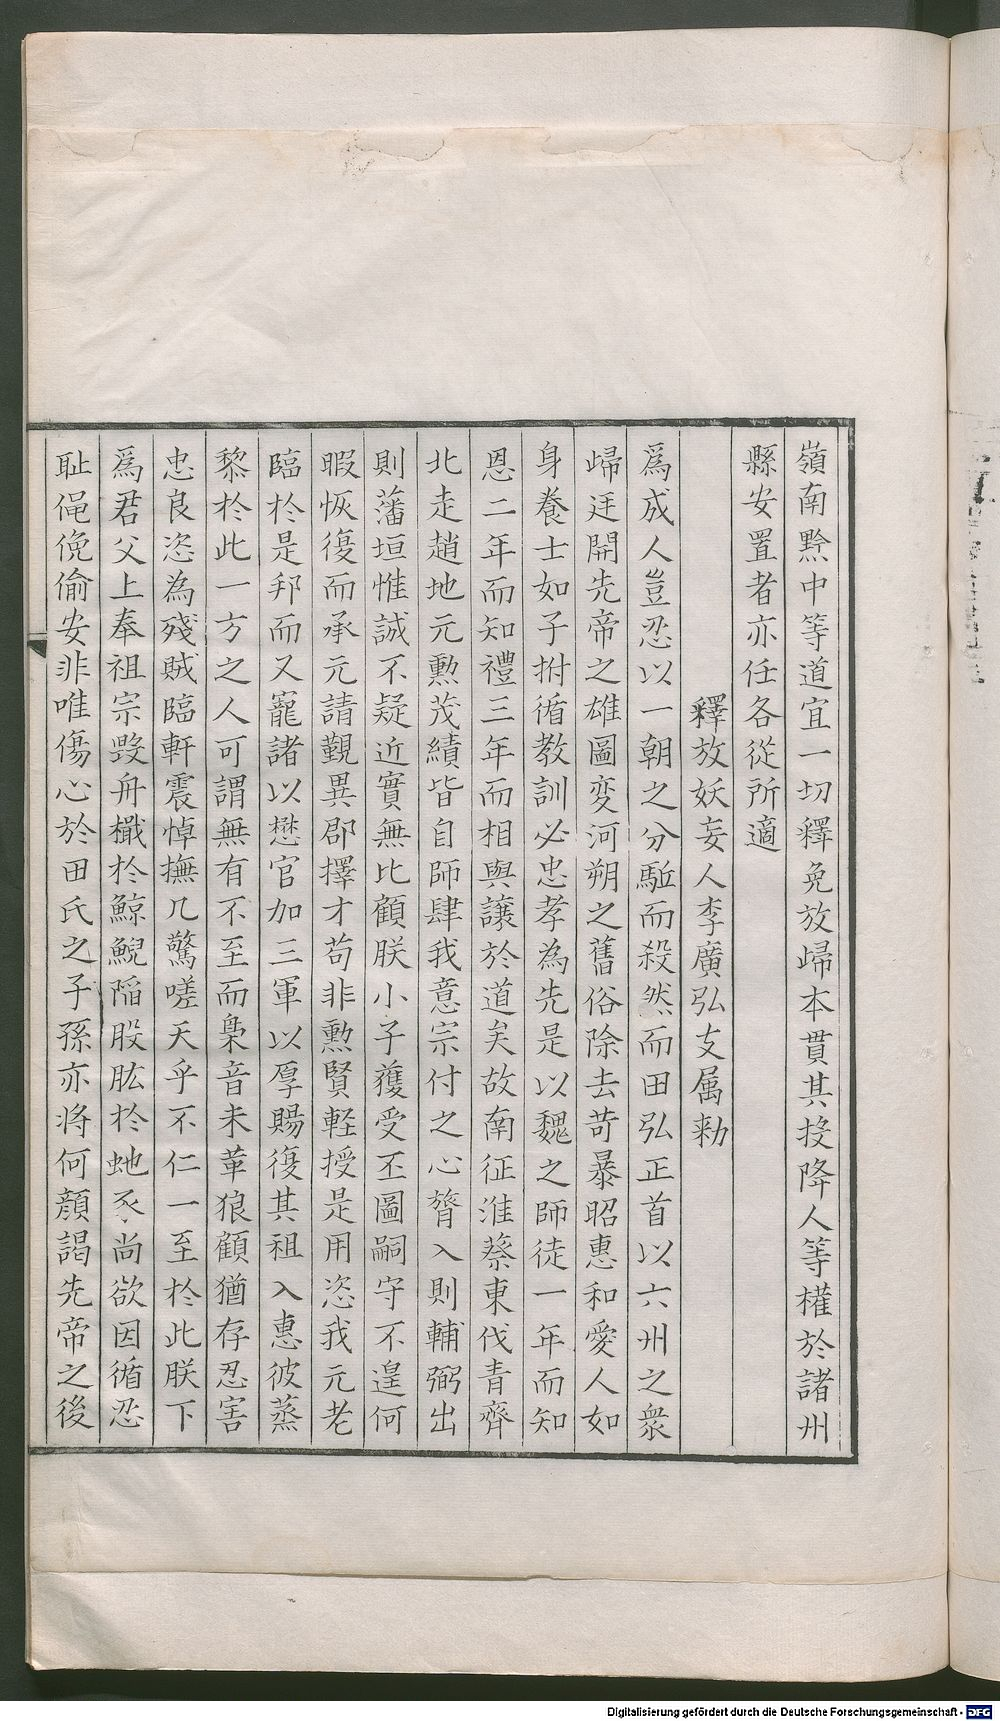 嶺南黔中等道宜一切釋免放歸本貫其投降人等權於諸州
縣安置者亦任各從所適
釋放妖妄人李廣弘支属勑
爲成人豈忍以一朝之分駈而殺然而田弘正首以六州之衆
歸廷開先帝之雄圖变河朔之舊俗除去苛暴昭惠和愛人如
身養士如子拊循教訓必忠孝為先是以魏之師徒一年而知
恩二年而知禮三年而相與讓於道矣故南征淮蔡東伐青齊
北走趙地元勲茂績皆自師肆我意宗付之心膂入則輔弼出
則藩垣惟誠不疑近實無比顧朕小子獲受丕圖嗣守不遑何
暇恢復而承元請覲異郡擇才苟非勲賢軽授是用恣我元老
臨於是邦而又寵諸以懋官加三軍以厚賜復其祖入惠彼蒸
黎於此一方之人可謂無有不至而梟音未革狼顧猶存忍害
忠良恣為殘賊臨軒震悼撫几驚嗟天乎不仁一至於此朕下
爲君父上奉祖宗毀舟檝於鯨鯢陷股肱於虵豕尚欲因循忍
耻僶俛偷安非唯傷心於田氏之子孫亦将何顔謁先帝之後
Digitalisierung gefördert durch die Deutsche Forschungsgemeinschaft - DFG